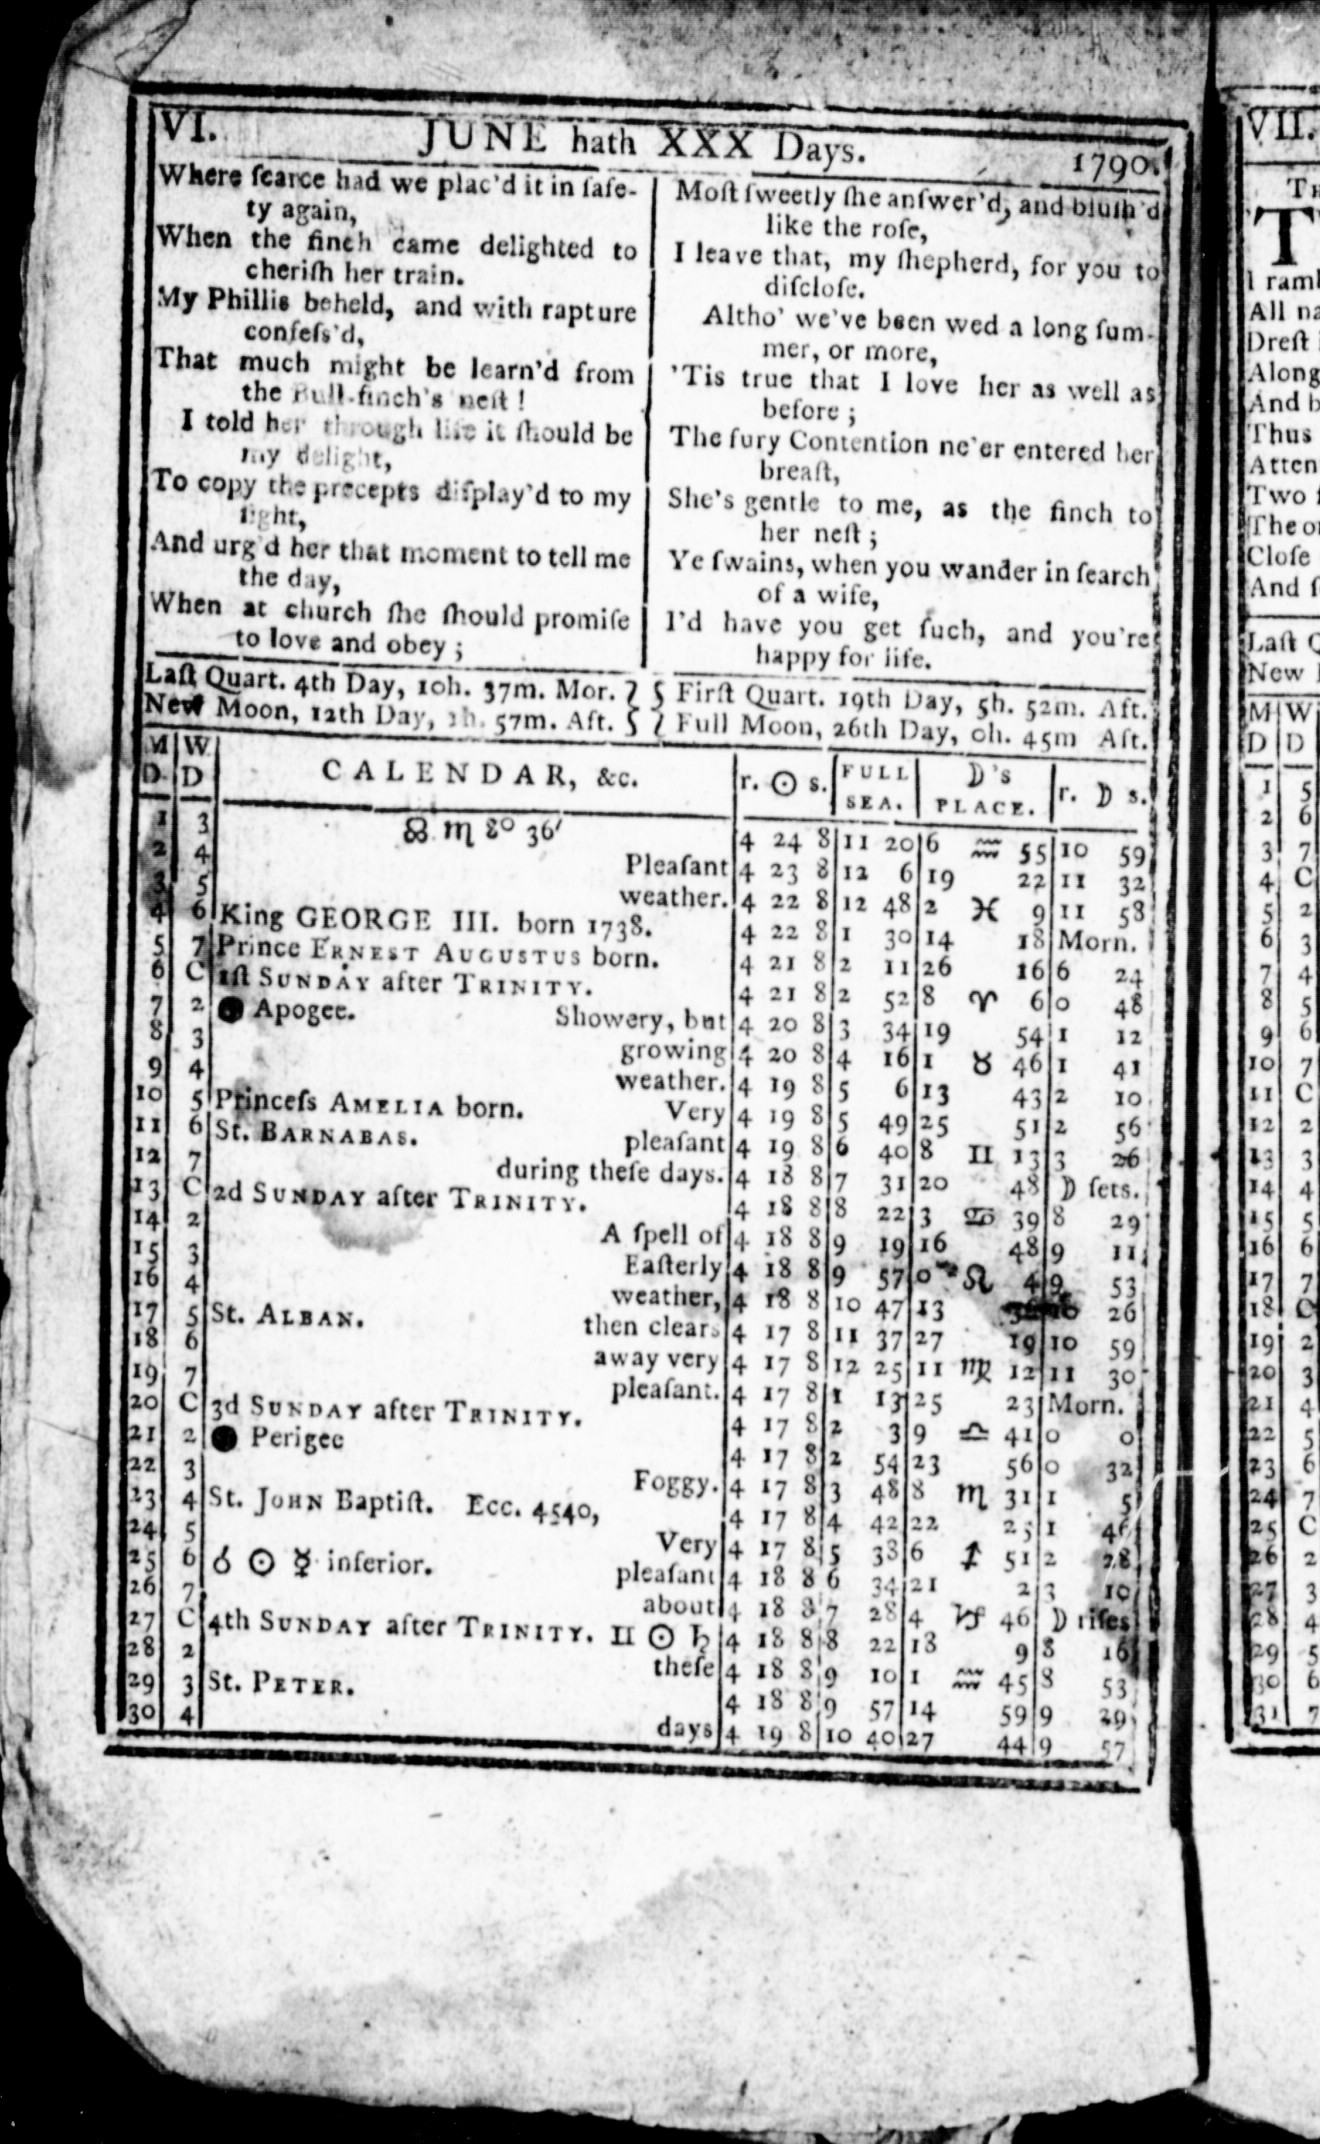 VI. JUNE hath XXX Days. 1790.
Where ſcarce had we plac'd it in ſafe-
ty again,
When the finch came delighted to
cheriſh her train.
My Phillis beheld, and with rapture
confeſs'd,
That much might be learn'd from
the Bull-finch's neſt!
I told her through life it ſhould be
my delight,
To copy the precepts diſplay'd to my
ſight,
And urg'd her that moment to tell me
the day,
When at church ſhe ſhould promiſe
to love and obey;
Moſt ſweetly ſhe anſwer'd, and bluſh'd
like the roſe,
I leave that, my ſhepherd, for you to
diſcloſe.
Altho' we've been wed a long ſum-
mer, or more,
'Tis true that I love her as well as
before;
The fury Contention ne'er entered her
breaſt,
She's gentle to me, as the finch to
her neſt;
Ye ſwains, when you wander in ſearch
of a wife,
I'd have you get ſuch, and you're
happy for life.
Laſt Quart. 4th Day, 10h. 37m. Mor. } { Firſt Quart. 19th Day, 5h. 52m. Aft.
New Moon, 12th Day, 57m. Aft. } { Full Moon, 26th Day, 0h. 45m Aft.
M D W D CALENDAR, &c. r. ☉ s. FULL SEA. ☽'s PLACE. r. ☽ s.
1 3 ☊ ♏ 8° 36′ 4 24 8 11 20 6 ♒ 55 10 59
2 4 Pleaſant 4 23 8 12 6 19 22 11 32
3 5 weather. 4 22 8 12 48 2 ♓ 9 11 58
4 6 King GEORGE III. born 1738. 4 22 8 1 30 14 18 Morn.
5 7 Prince ERNEST AUGUSTUS born. 4 21 8 2 11 26 16 6 24
6 C 1ſt SUNDAY after TRINITY. 4 21 8 2 52 8 ♈ 6 0 48
7 2 ● Apogee. Showery, but 4 20 8 3 34 19 54 1 12
8 3 growing 4 20 8 4 16 1 ♉ 46 1 41
9 4 weather. 4 19 8 5 6 13 43 2 10
10 5 Princeſs AMELIA born. Very 4 19 8 5 49 25 51 2 56
11 6 St. BARNABAS. pleaſant 4 19 8 6 40 8 ♊ 13 3 26
12 7 during theſe days. 4 18 8 7 31 20 48 ☽ ſets.
13 C 2d SUNDAY after TRINITY. 4 18 8 8 22 3 ♋ 39 8 29
14 2 A ſpell of 4 18 8 9 19 16 48 9 11
15 3 Eaſterly 4 18 8 9 57 0 ♌ 4 9 53
16 4 weather, 4 18 8 10 47 13 26
17 5 St. ALBAN. then clears 4 17 8 11 37 27 19 10 59
18 6 away very 4 17 8 12 25 11 ♍ 12 11 30
19 7 pleaſant. 4 17 8 1 13 25 23 Morn.
20 C 3d SUNDAY after TRINITY. 4 17 8 2 3 9 ♎ 41 0 0
21 2 ● Perigee 4 17 8 2 54 23 56 0 32
22 3 Foggy. 4 17 8 3 48 8 ♏ 31 1 5
23 4 St. JOHN Baptiſt. Ecc. 4540, 4 17 8 4 42 22 25 1 46
24 5 Very 4 17 8 5 38 6 ♐ 51 2 28
25 6 ☌ ☉ ☿ inferior. pleaſant 4 18 8 6 34 21 2 3 10
26 7 about 4 18 8 7 28 4 ♑ 46 ☽ riſes
27 C 4th SUNDAY after TRINITY. ♊ ☉ ♄ 4 18 8 8 22 18 9 8 16
28 2 theſe 4 18 8 9 10 1 ♒ 45 8 53
29 3 St. PETER. 4 18 8 9 57 14 59 9 29
30 4 days 4 19 8 10 40 27 44 9 57
VII.
T
I
All
Dreſt
Along
And
Thus
Atten
Two
The
Cloſe
And
Laſt
New
M D W D
1 5
2 6
3 7
4 C
5 2
6 3
7 4
8 5
9 6
10 7
11 C
12 2
13 3
14 4
15 5
16 6
17 7
18 C
19 2
20 3
21 4
22 5
23 6
24 7
25 C
26 2
27 3
28 4
29 5
30 6
31 7